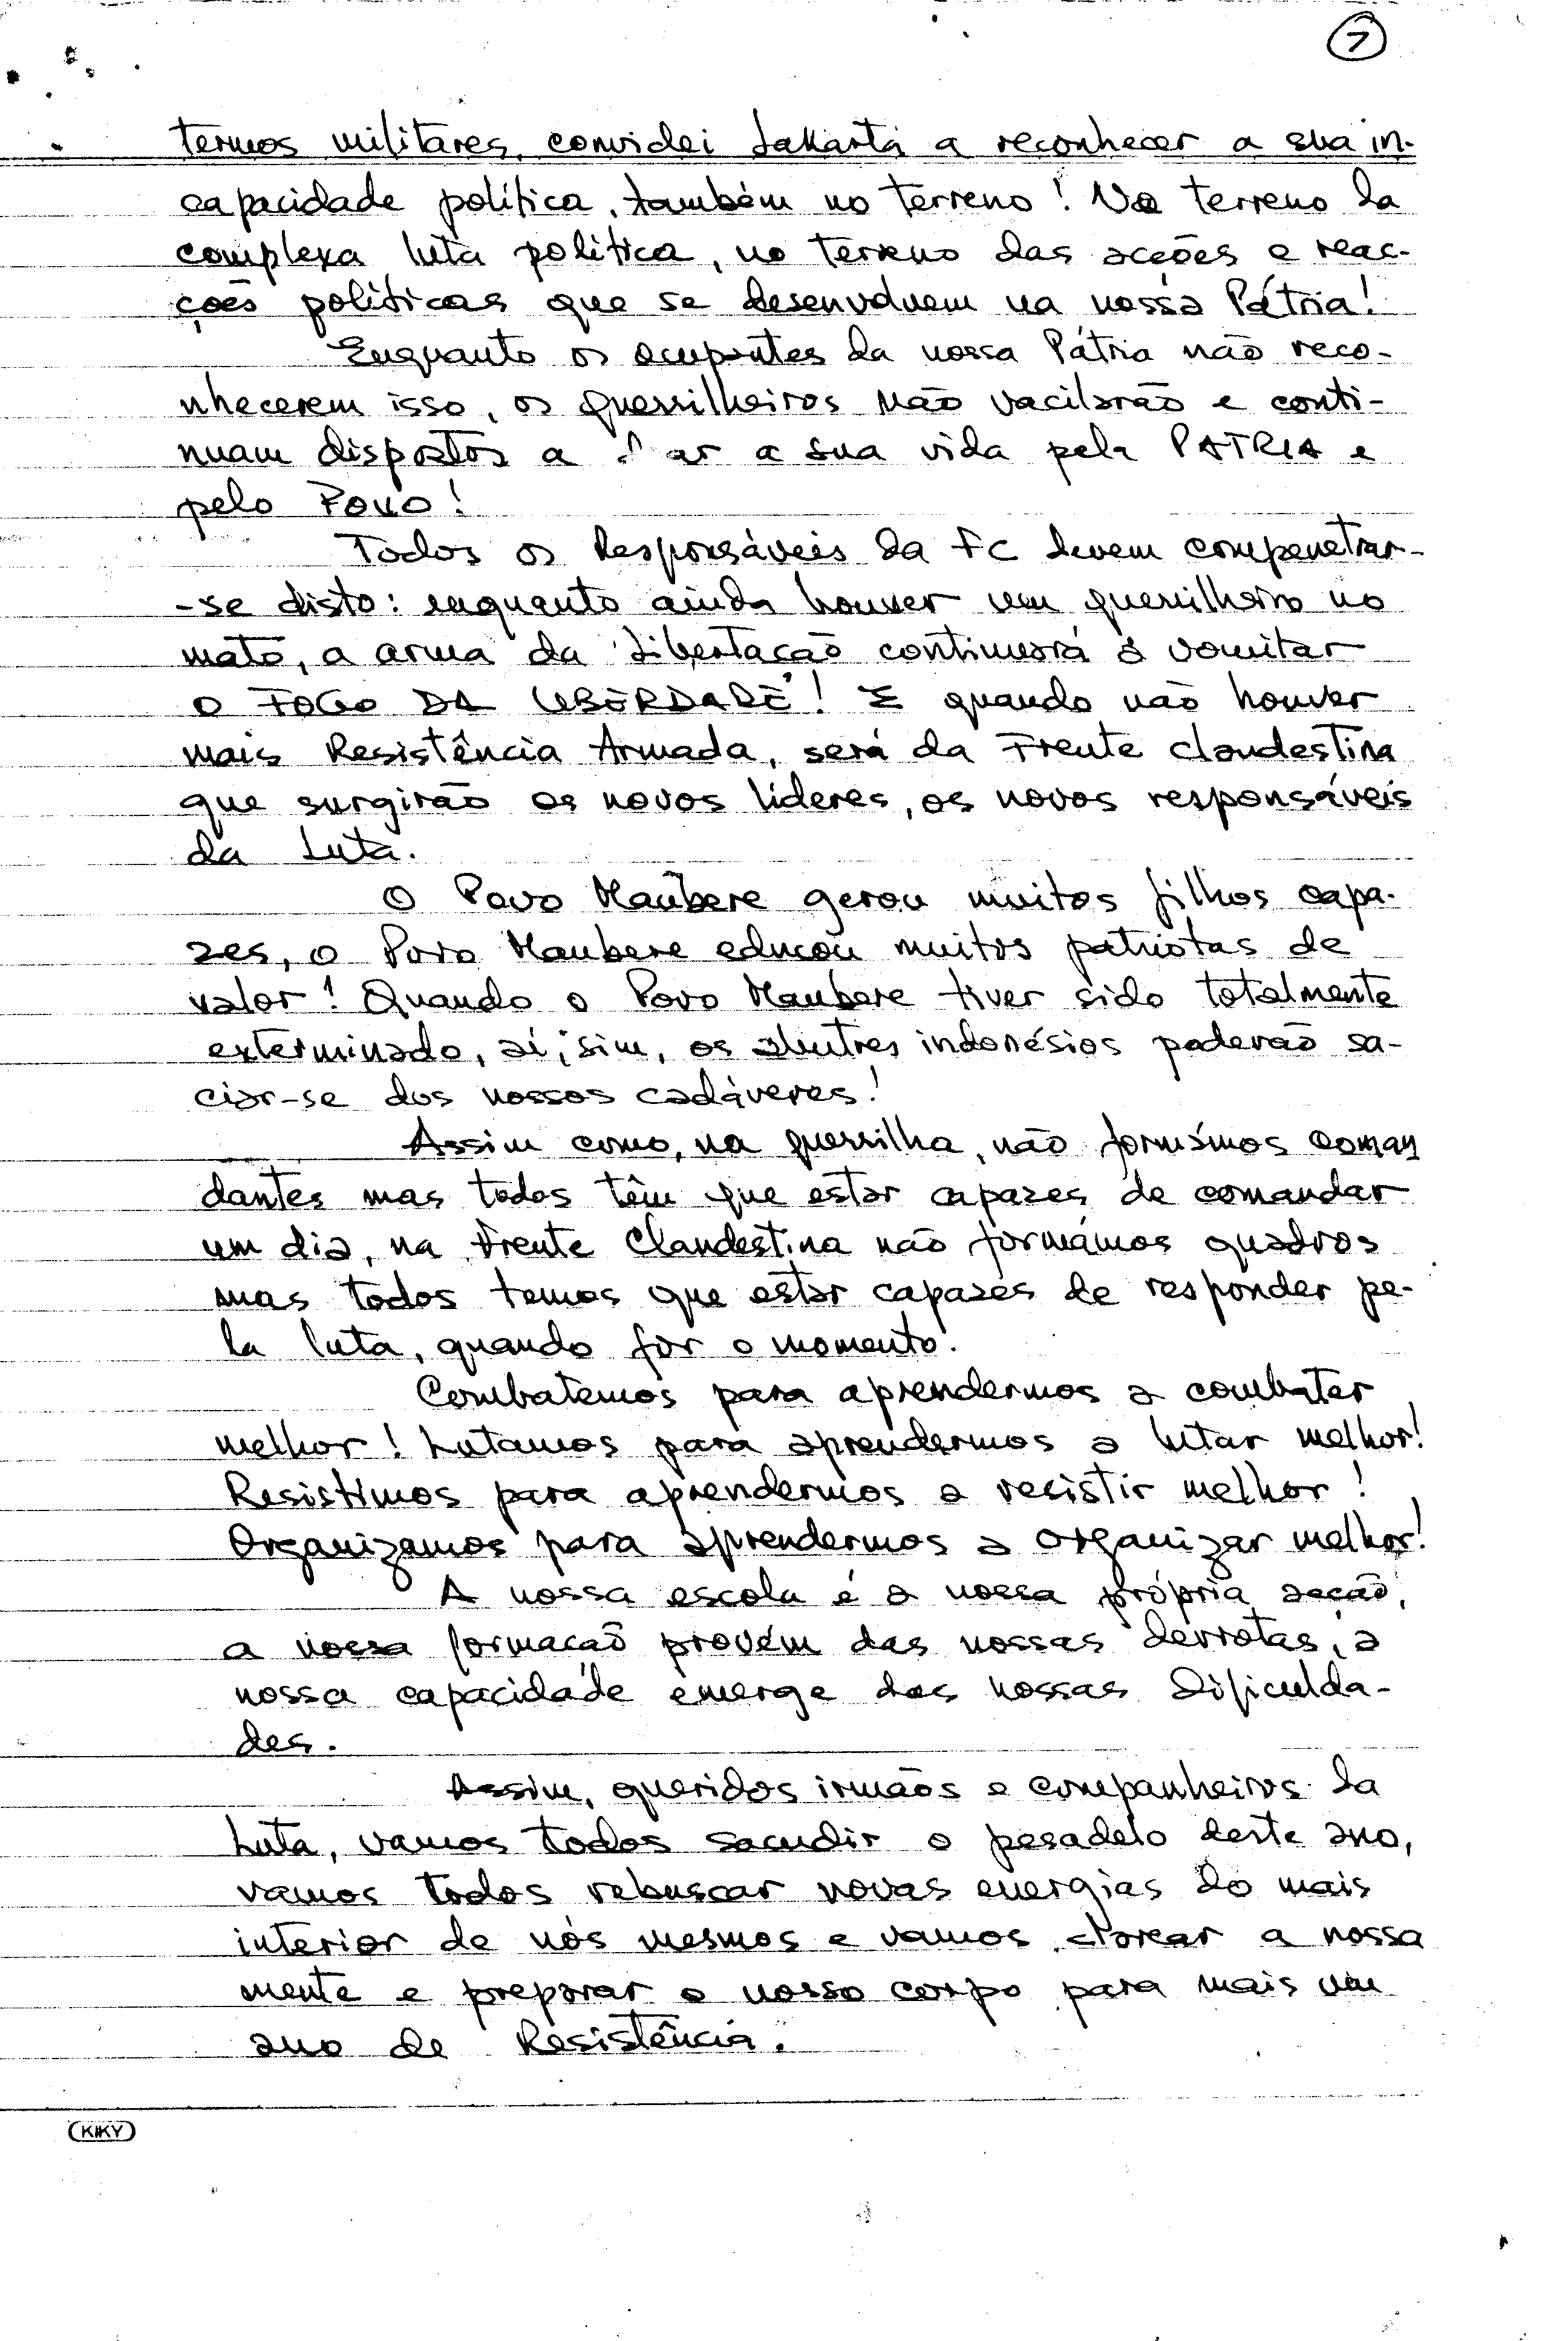 7
termos militares, convidei Jakarta a reconhecer a sua in-
capacidade política, também no terreno! No terreno da
complexa luta política, no terreno das acções e reac-
ções políticas que se desenvolvem na nossa Pátria!
Enquanto os ocupantes da nossa Pátria não reco-
nhecerem isso, os guerrilheiros não vacilarão e conti-
nuam dispostos a dar a sua vida pela PATRIA e
pelo Povo!
Todos os Responsáveis da FC devem compenetrar-
-se disto: enquanto ainda houver um guerrilheiro no
mato, a arma da Libertação continuará a vomitar
O FOGO DA LIBERDADE! E quando não houver
mais Resistência Armada, será da Frente Clandestina
que surgirão os novos líderes, os novos responsáveis
da Luta.
O Povo Maubere gerou muitos filhos capa-
zes, o Povo Maubere educou muitos patriotas de
valor! Quando o Povo Maubere tiver sido totalmente
exterminado, aí, sim, os abutres indonésios poderão sa-
ciar-se dos nossos cadáveres!
Assim como, na guerrilha, não formámos coman
dantes mas todos têm que estar capazes de comandar
um dia, na Frente Clandestina não formámos quadros
mas todos temos que estar capazes de responder pe-
la luta, quando fôr o momento.
Combatemos para aprendermos a combater
melhor! Lutamos para aprendermos a lutar melhor!
Resistimos para aprendermos a resistir melhor!
Organizamos para aprendermos a organizar melhor!
A nossa escola é a nossa própria acção,
a nossa formação provém das nossas derrotas, a
nossa capacidade emerge das nossas dificulda-
des.
Assim, queridos irmãos e companheiros da
Luta, vamos todos sacudir o pesadelo deste ano,
vamos todos rebuscar novas energias do mais
interior de nós mesmos e vamos clarear a nossa
mente e preparar o nosso corpo para mais um
ano de Resistência.
KIKY